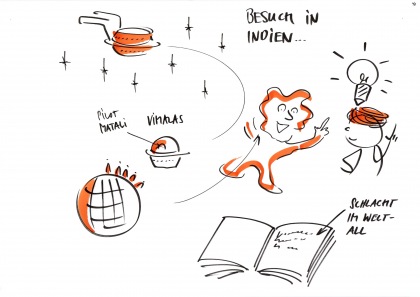 BESUCH IN
INDIEN...
PILOT
MATALI
VIMALAS
SCHLACHT
IM WELT-
ALL